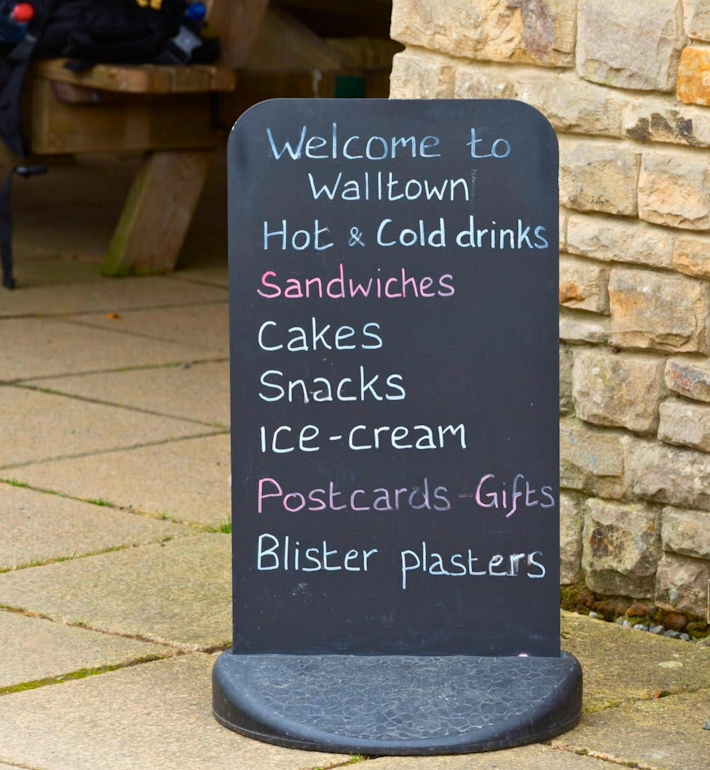 Welcome to
Walltown
Hot & Cold drinks
Sandwiches
Cakes
Snacks
Ice-cream
Postcards-Gifts
Blister plasters